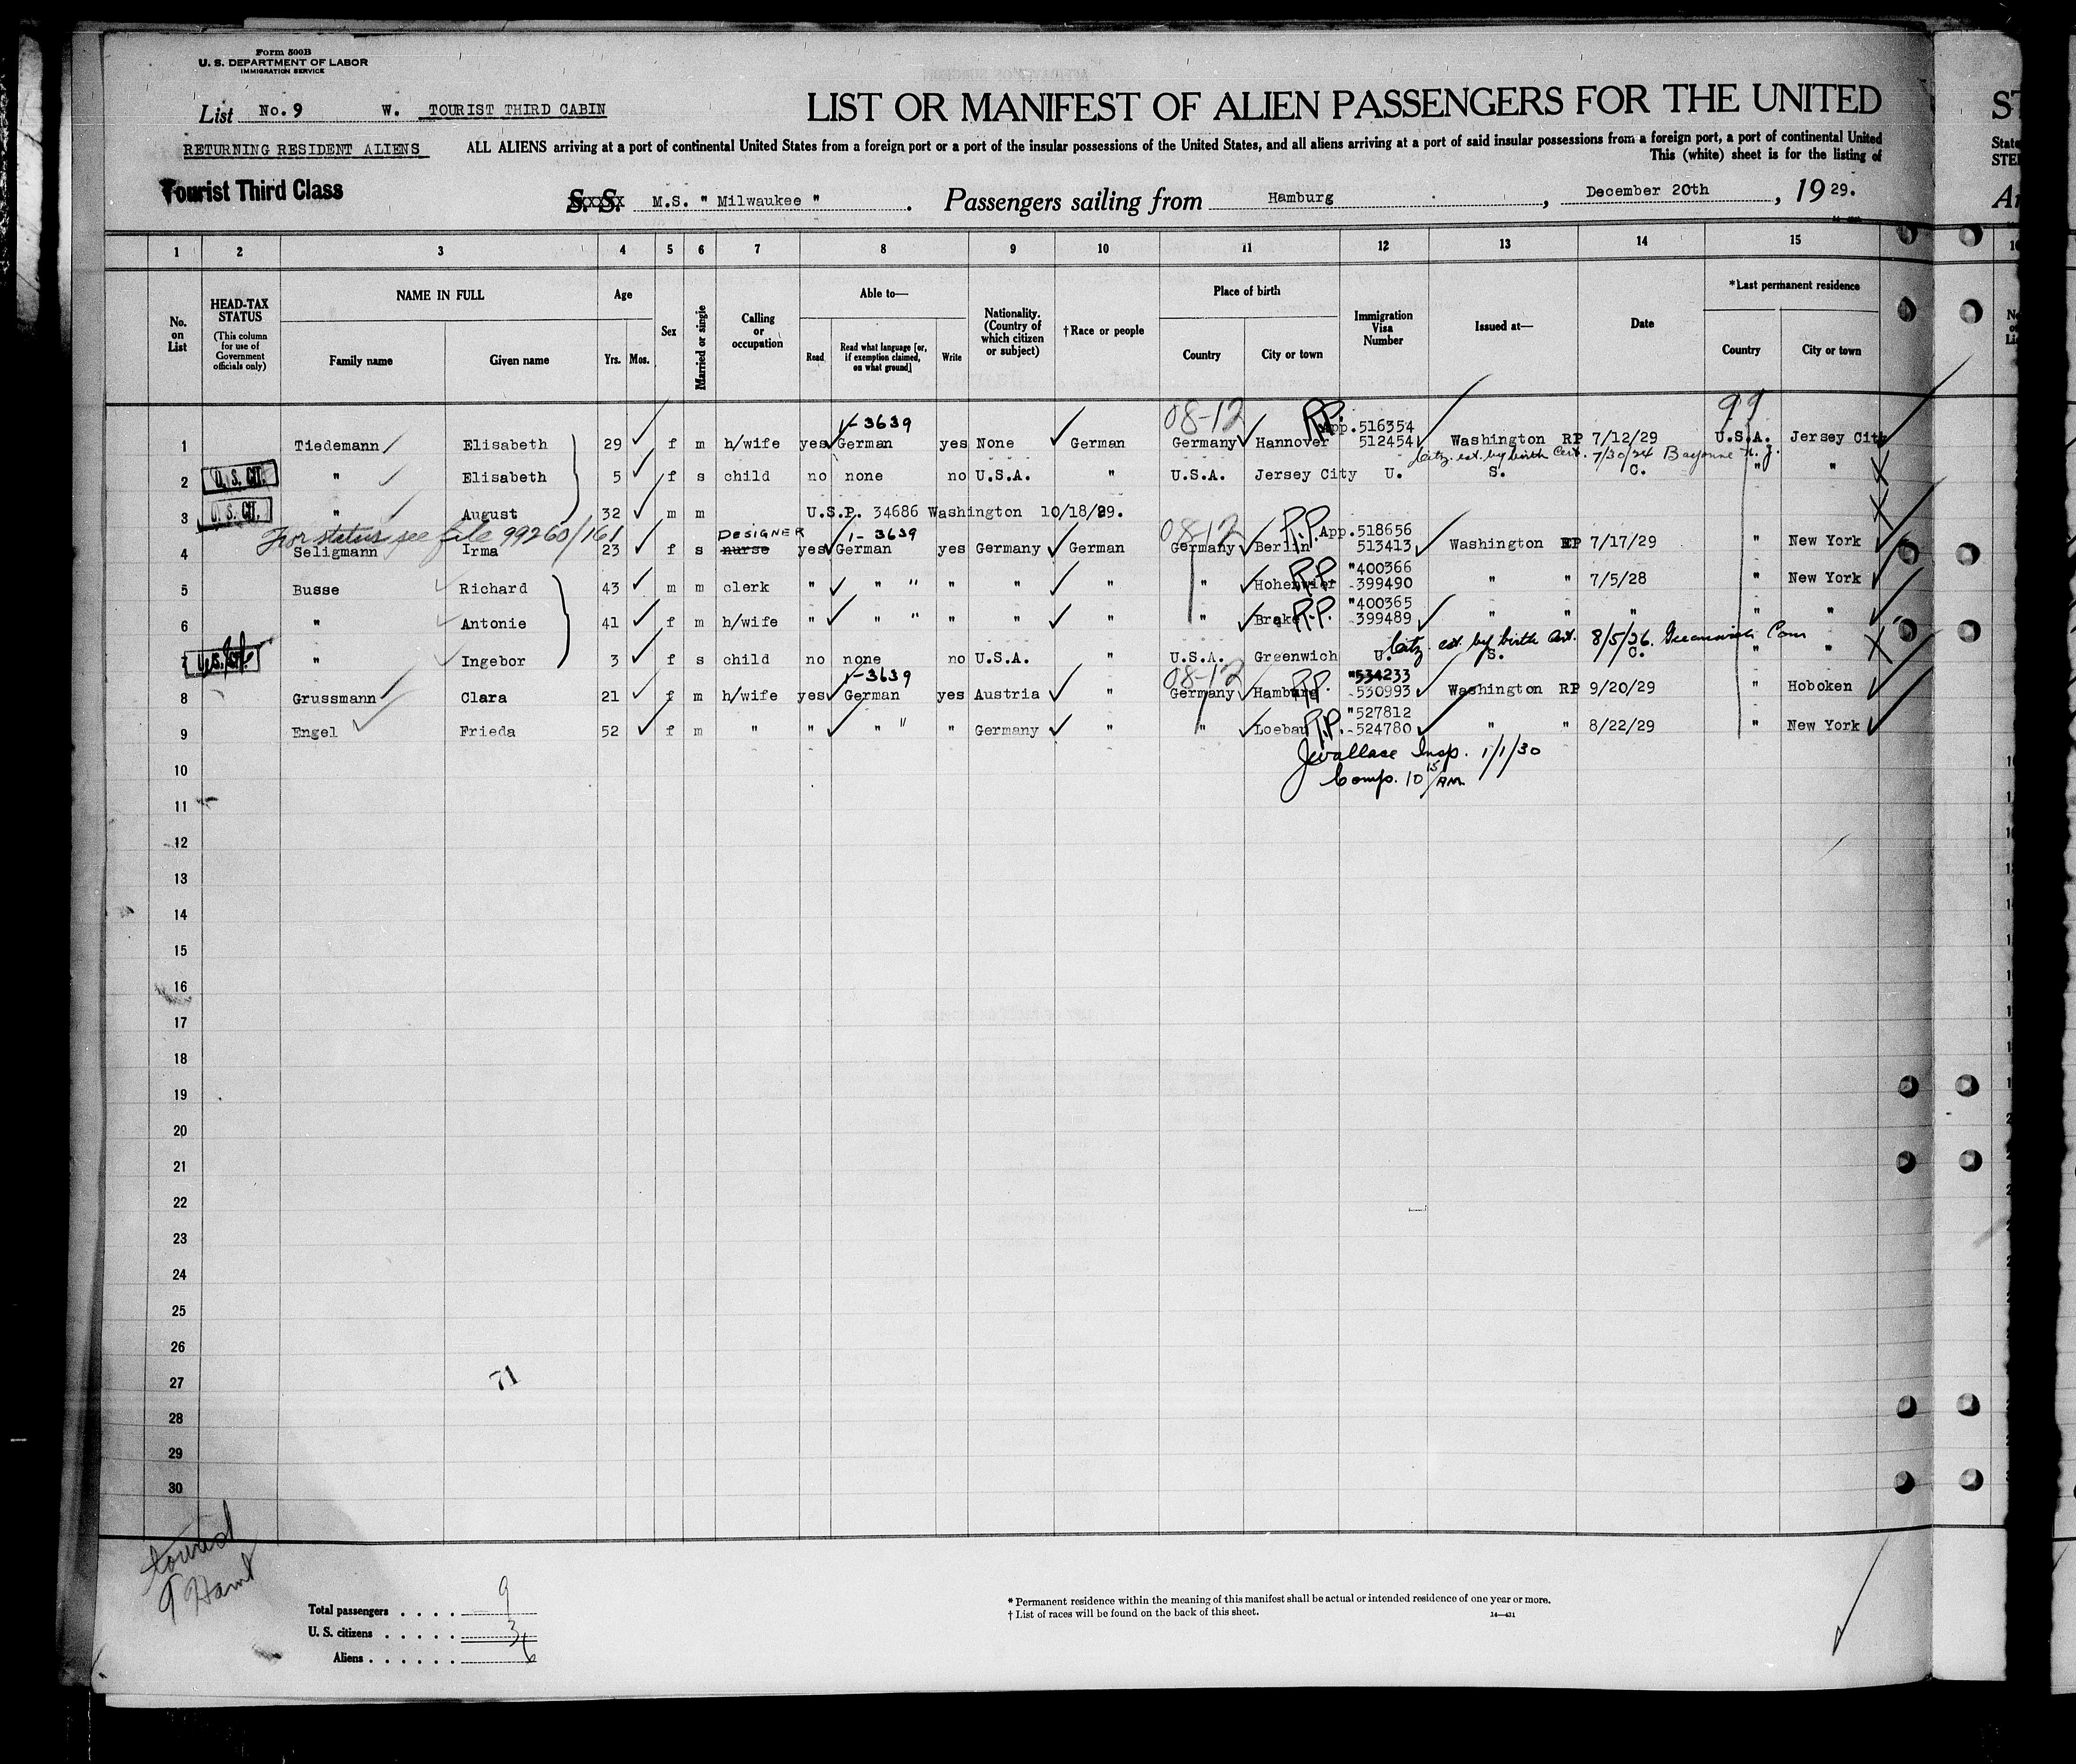 Form 500B
U. S. DEPARTMENT OF LABOR
IMMIGRATION SERVICE
List No. 9 W. TOURIST THIRD CABIN
LIST OR MANIFEST OF ALIEN PASSENGERS FOR THE UNITED
RETURNING RESIDENT ALIENS
ALL ALIENS arriving at a port of continental United States from a foreign port or a port of the insular possessions of the United States, and all aliens arriving at a port of said insular possessions from a foreign port, a port of continental United
This (white) sheet is for the listing of
Tourist Third Class
S. S. M.S. " Milwaukee " . Passengers sailing from Hamburg , December 20th , 19 29.
1 2 3 4 5 6 7 8 9 10 11 12 13 14 15
No. on List
HEAD-TAX STATUS
(This column for use of Government officials only)
NAME IN FULL
Family name Given name
Age
Yrs. Mos.
Sex
Married or single
Calling or occupation
Able to—
Read
Read what language [or, if exemption claimed, on what ground]
Write
Nationality. (Country of which citizen or subject)
† Race or people
Place of birth
Country City or town
Immigration Visa Number
Issued at—
Date
*Last permanent residence
Country City or town
08-12 R.P. 99
1-3639 App.516354
1 Tiedemann Elisabeth 29 f m h/wife yes German yes None German Germany Hannover 512454 Washington RP 7/12/29 U.S.A. Jersey City
Citz. est. by birth Cert. 7/30/24 Bayonne N. J.
2 U. S. CIT. " Elisabeth 5 f s child no none no U.S.A. " U.S.A. Jersey City U. S. C. " "
3 U. S. CIT. " August 32 m m U.S.P. 34686 Washington 10/18/29.
For status see file 99260/161 DESIGNER 1-3639 08-12 R.P. App.518656
4 Seligmann Irma 23 f s nurse yes German yes Germany German Germany Berlin 513413 Washington RP 7/17/29 " New York
R.P. "400366
5 Busse Richard 43 m m clerk " " " " " " " Hohenwier -399490 " " 7/5/28 " New York
R.P. "400365
6 " Antonie 41 f m h/wife " " " " " " " Brake -399489 " " " " "
Citz. est. by birth Cert. 8/5/26. Greenwich Conn
7 U. S. CIT. " Ingebor 3 f s child no none no U.S.A. " U.S.A. Greenwich U. S. C. " "
1-3639 08-12 R.P. "534233
8 Grussmann Clara 21 f m h/wife yes German yes Austria " Germany Hamburg -530993 Washington RP 9/20/29 " Hoboken
R.P. "527812
9 Engel Frieda 52 f m " " " " " Germany " " Loebau -524780 " " 8/22/29 " New York
JWallace Insp. 1/1/30
Comp. 10 15/AM
10
11
12
13
14
15
16
17
18
19
20
21
22
23
24
25
26
27
71
28
29
30
9
Total passengers . . . . 9
U. S. citizens . . . . . 3
Aliens . . . . . . 6
* Permanent residence within the meaning of this manifest shall be actual or intended residence of one year or more.
† List of races will be found on the back of this sheet.
14—431